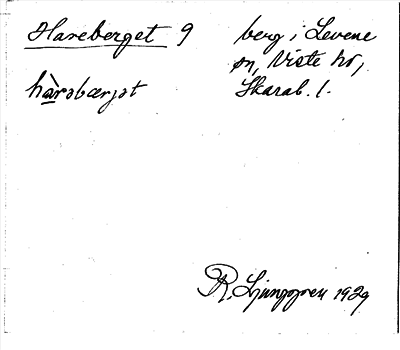 Hareberget 9
berg i Levene
sn, Viste hd,
Skarab. l.
hàrəbærjət
R. Ljunggren 1929